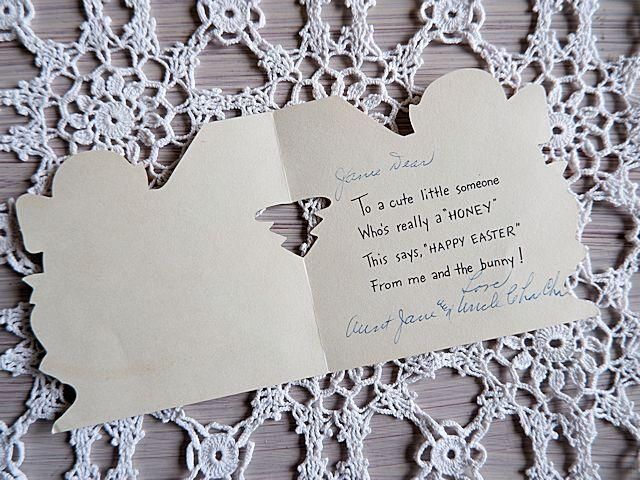 Janie Dear
To a cute little someone
Who's really a "HONEY"
This says, "HAPPY EASTER"
From me and the bunny!
Love
Aunt Jane & Uncle Cha Cha